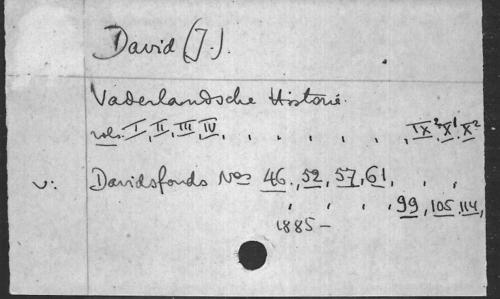 David (J.).
Vaderlandsche Historie.
vols. I, II, III, IV, , , , , , , IX², X¹, X²
v: Davidsfonds Nos 46, 52, 57, 61, , ,
, , , , 99, 105, 114,
1885-